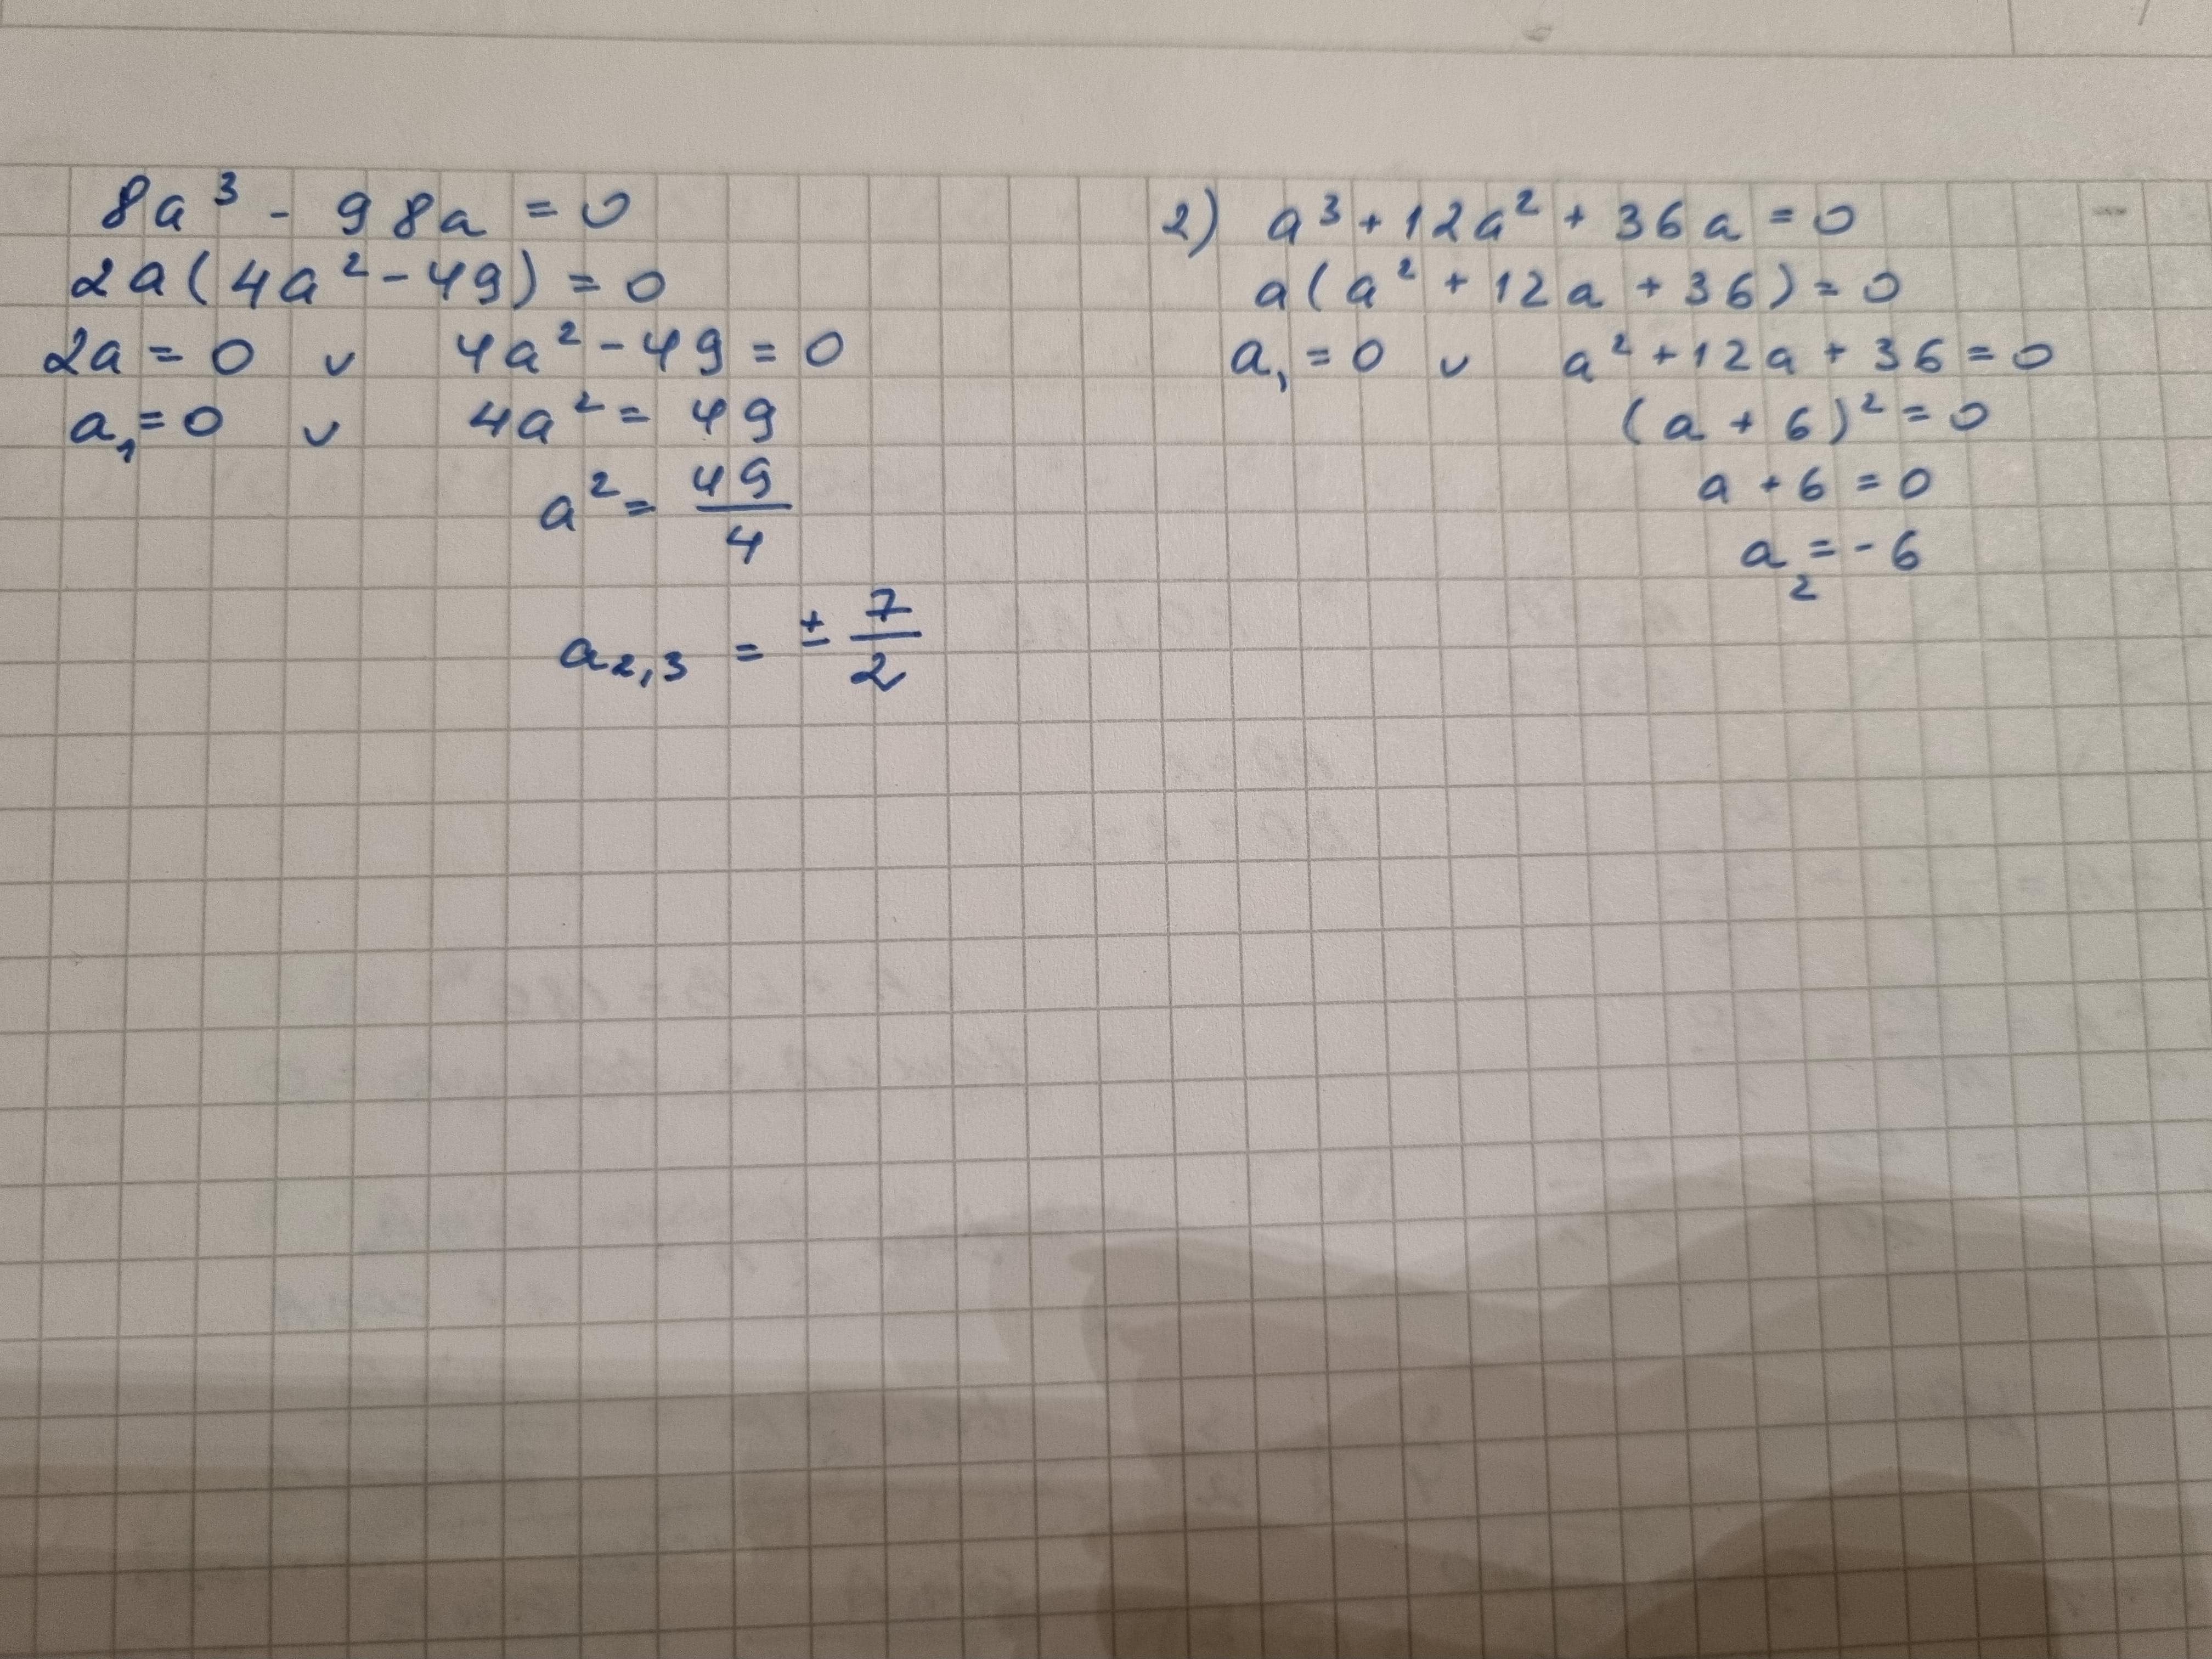 8a³ - 98a = 0
2a(4a² - 49) = 0
2a = 0 ∨ 4a² - 49 = 0
a₁ = 0 ∨ 4a² = 49
a² = 49/4
a₂,₃ = ± 7/2
2) a³ + 12a² + 36a = 0
a(a² + 12a + 36) = 0
a₁ = 0 ∨ a² + 12a + 36 = 0
(a + 6)² = 0
a + 6 = 0
a₂ = -6